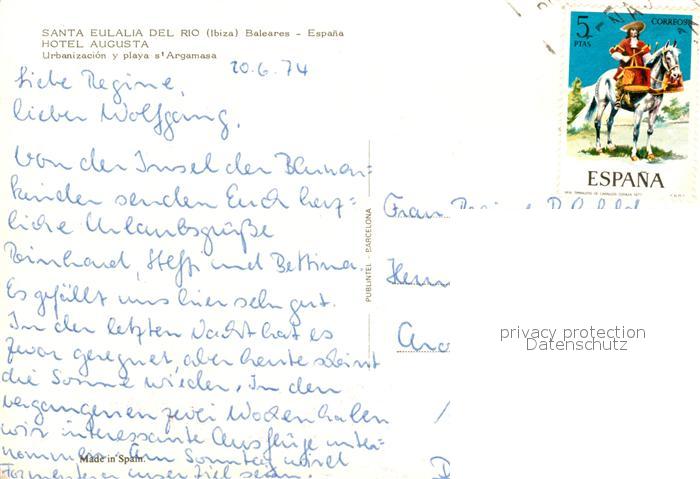 SANTA EULALIA DEL RIO (Ibiza) Baleares - España
HOTEL AUGUSTA
Urbanización y playa s'Argamasa
20.6.74
Liebe Regine,
lieber Wolfgang,
Von der Insel der Blumen=
kinder senden Euch herz=
liche Urlaubsgrüße
Reinhard, Steffi und Bettina.
Es gefällt uns hier sehr gut.
In der letzten Nacht hat es
zwar geregnet, aber heute scheint
die Sonne wieder. In den
vergangenen zwei Wochen haben
wir interessante Ausflüge unter=
nommen. Am Sonntag wird
Formentera unser Ziel sein.
Made in Spain.
PUBLINTEL - BARCELONA
5 CORREOS
PTAS
ESPAÑA
Frau
privacy protection
Datenschutz